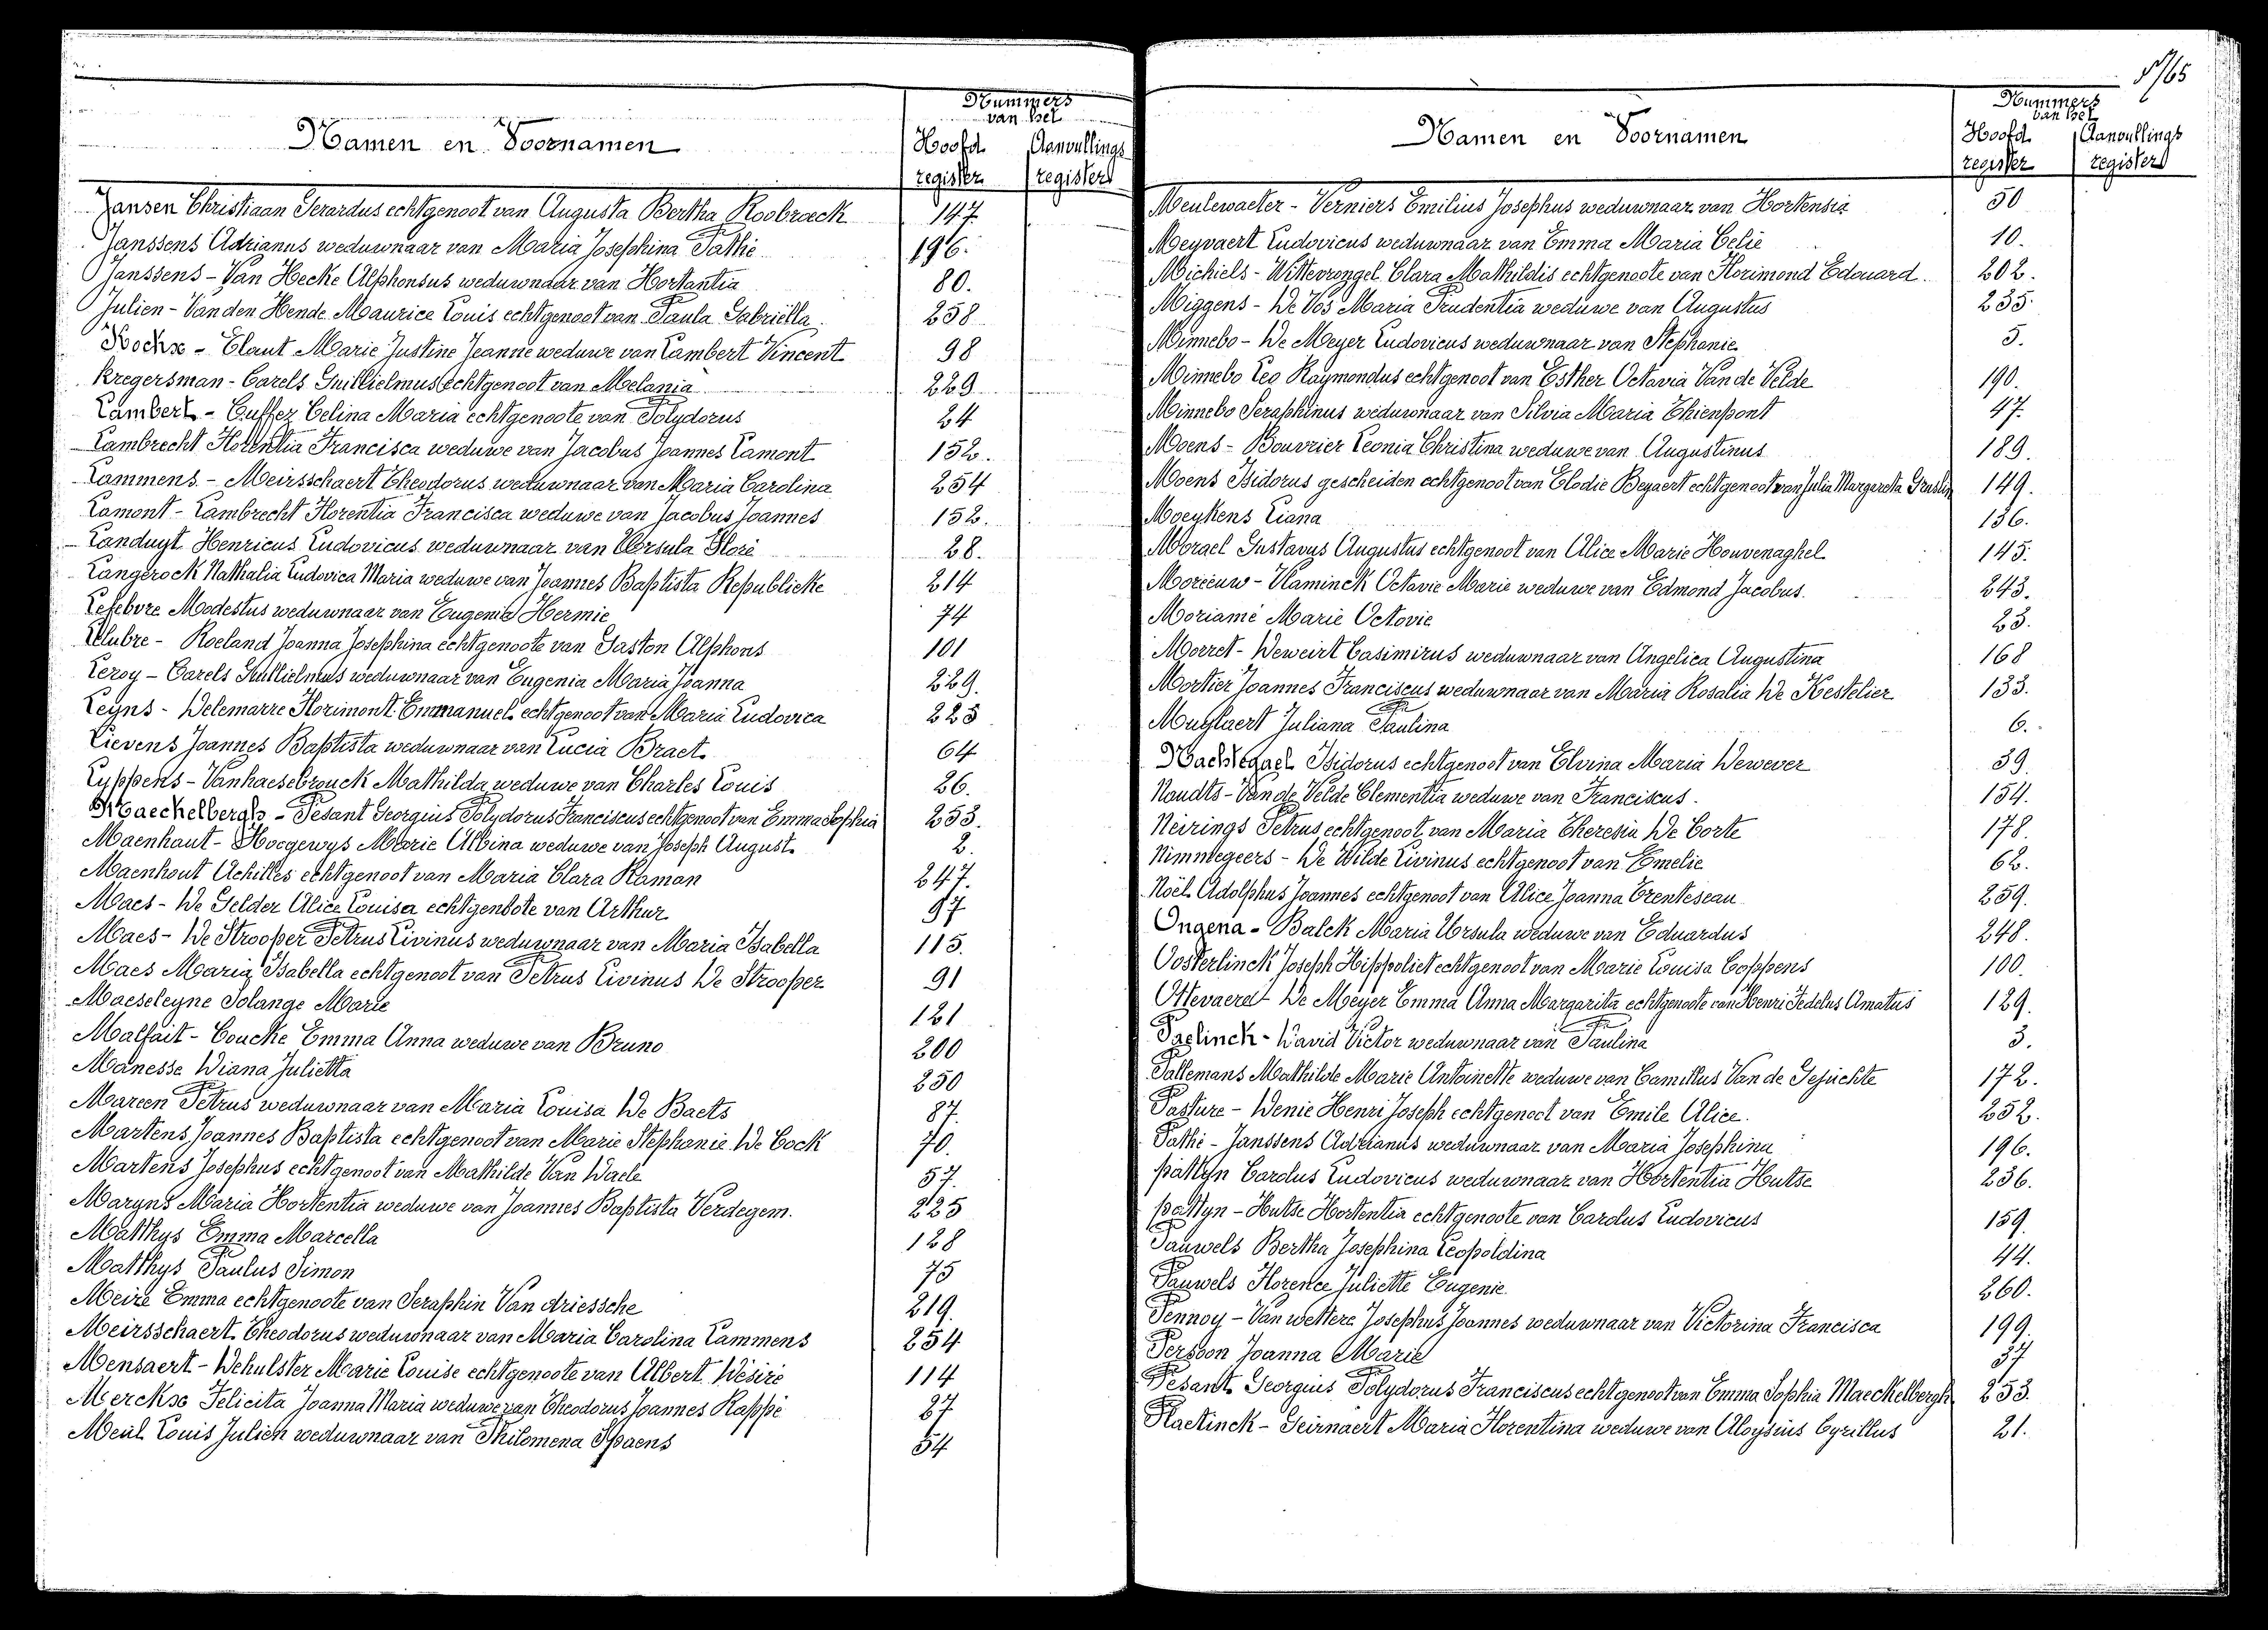 Nummers
van het
Namen en Voornamen
Hoofd Aanvullings
register registers
Jansen Christiaan Gerardus echtgenoot van Augusta Bertha Roobroeck 147.
Janssens Adrianus weduwnaar van Maria Josephina Pathé 196.
Janssens - Van Hecke Alphonsus weduwnaar van Hortantia 80.
Julien - Van den Hende Maurice Louis echtgenoot van Paula Gabriëlla 258
Kockx - Claut Marie Justine Jeanne weduwe van Lambert Vincent 98
Kregersman - Carels Guillielmus echtgenoot van Melania 229
Lambert - Cuffez Celina Maria echtgenoote van Polydorus 24
Lambrecht Florentia Francisca weduwe van Jacobus Joannes Lamont 152.
Lammens - Meirsschaert Theodorus weduwnaar van Maria Carolina 254
Lamont - Lambrecht Florentia Francisca weduwe van Jacobus Joannes 152.
Landuyt Henricus Ludovicus weduwnaar van Ursula Floré 28.
Langerock Nathalia Ludovica Maria weduwe van Joannes Baptista Republieke 214
Lefebvre Modestus weduwnaar van Eugenie Hermie 74
Roeland Joanna Josephina echtgenoote van Gaston Alphons 101
Leroy - Carels Guillielmus weduwnaar van Eugenia Maria Joanna 229.
Leyns - Delemarre Florimont Emmanuel echtgenoot van Maria Ludovica 223
Lievens Joannes Baptista weduwnaar van Lucia Braet 64
Lyppens - Vanhaesebrouck Mathilda weduwe van Charles Louis 26.
Maeckelbergh - Pesant Georgius Polydorus Franciscus echtgenoot van Emma Sophia 253.
Maenhaut - Hoegewys Marie Albina weduwe van Joseph August 2.
Maenhout Achilles echtgenoot van Maria Clara Raman 247.
Maes - De Gelder Alice Louisa echtgenoote van Arthur 97
Maes - De Strooper Petrus Livinus weduwnaar van Maria Isabella 115.
Maes Maria Isabella echtgenoot van Petrus Livinus De Strooper 91
Maeseleyne Solange Marie 121
Malfait - Coucke Emma Anna weduwe van Bruno 200
Manesse Diana Julietta 250
Mareen Petrus weduwnaar van Maria Louisa De Baets 87.
Martens Joannes Baptista echtgenoot van Marie Stephanie De Cock 70.
Martens Josephus echtgenoot van Mathilde Van Daele 57.
Maryns Maria Hortentia weduwe van Joannes Baptista Verdegem. 225
Matthys Emma Marcella 128
Matthys Paulus Simon 75
Meire Emma echtgenoote van Seraphin Van driessche 219.
Meirsschaert Theodorus weduwnaar van Maria Carolina Lammens 254
Mensaert - Dehulster Marie Louise echtgenoote van Albert Désiré 114
Merckx Felicita Joanna Maria weduwe van Theodorus Joannes Rappé 27
Meul Louis Julien weduwnaar van Philomena Spaens 54
Nummers
van het
Namen en Voornamen
Hoofd Aanvullings
register registers
Meulewaeter - Verniers Emilius Josephus weduwnaar van Hortensia 50
Meyvaert Ludovicus weduwnaar van Emma Maria Celie 10.
Michiels - Wittevrongel Clara Mathildis echtgenoote van Florimond Edouard 202.
Miggens - De Vos Maria Prudentia weduwe van Augustus 235.
Minnebo - De Meyer Ludovicus weduwnaar van Stephanie 5.
Minnebo Leo Raymondus echtgenoot van Esther Octavia Van de Velde 190.
Minnebo Seraphinus weduwnaar van Silvia Maria Thienpont 47.
Moens - Bouvrier Leonia Christina weduwe van Augustinus 189.
Moens Isidorus gescheiden echtgenoot van Elodie Beyaert echtgenoot van Julia Margareta 149.
Moeykens Liana 136.
Morael Gustavus Augustus echtgenoot van Alice Marie Houvenaghel 145.
Moreeuw - Vlaminck Octavie Marie weduwe van Edmond Jacobus 243.
Moriamé Marie Octovie 23.
Morret - Deweirt Casimirus weduwnaar van Angelica Augustina 168
Mortier Joannes Franciscus weduwnaar van Maria Rosalia De Kestelier 133.
Muylaert Juliana Paulina 6.
Nachtegael Isidorus echtgenoot van Elvina Maria Dewever 39
Naudts - Van de Velde Clementia weduwe van Franciscus. 154.
Neirings Petrus echtgenoot van Maria Theresia De Corte 178.
Nimmegeers - De Wilde Livinus echtgenoot van Emelie 62.
Noël Adolphus Joannes echtgenoot van Alice Joanna Trenteseau 259.
Ongena - Balck Maria Ursula weduwe van Eduardus 248.
Oosterlinck Joseph Hippoliet echtgenoot van Marie Louisa Coppens 100.
Ottevaere - De Meyer Emma Anna Margarita echtgenoote van Henri Fedelus Amatus 129.
Paelinck - David Victor weduwnaar van Paulina 3.
Pallemans Mathilde Marie Antoinette weduwe van Camillus Van de Gejuchte 172.
Pasture - Denie Henri Joseph echtgenoot van Emile Alice. 252.
Pathé - Janssens Adrianus weduwnaar van Maria Josephina 196.
pattyn Carolus Ludovicus weduwnaar van Hortentia Hutse 236.
pattyn - Hutse Hortentia echtgenoote van Carolus Ludovicus 159.
Pauwels Bertha Josephina Leopoldina 44.
Pauwels Florence Juliette Eugenie 260.
Pennoy - Van wettere Josephus Joannes weduwnaar van Victorina Francisca 199.
Persoon Joanna Marie 37
Pesant Georgius Polydorus Franciscus echtgenoot van Emma Sophia Maeckelbergh 253.
Plaetinck - Geirnaert Maria Florentina weduwe van Aloysius Cyrillus 21.